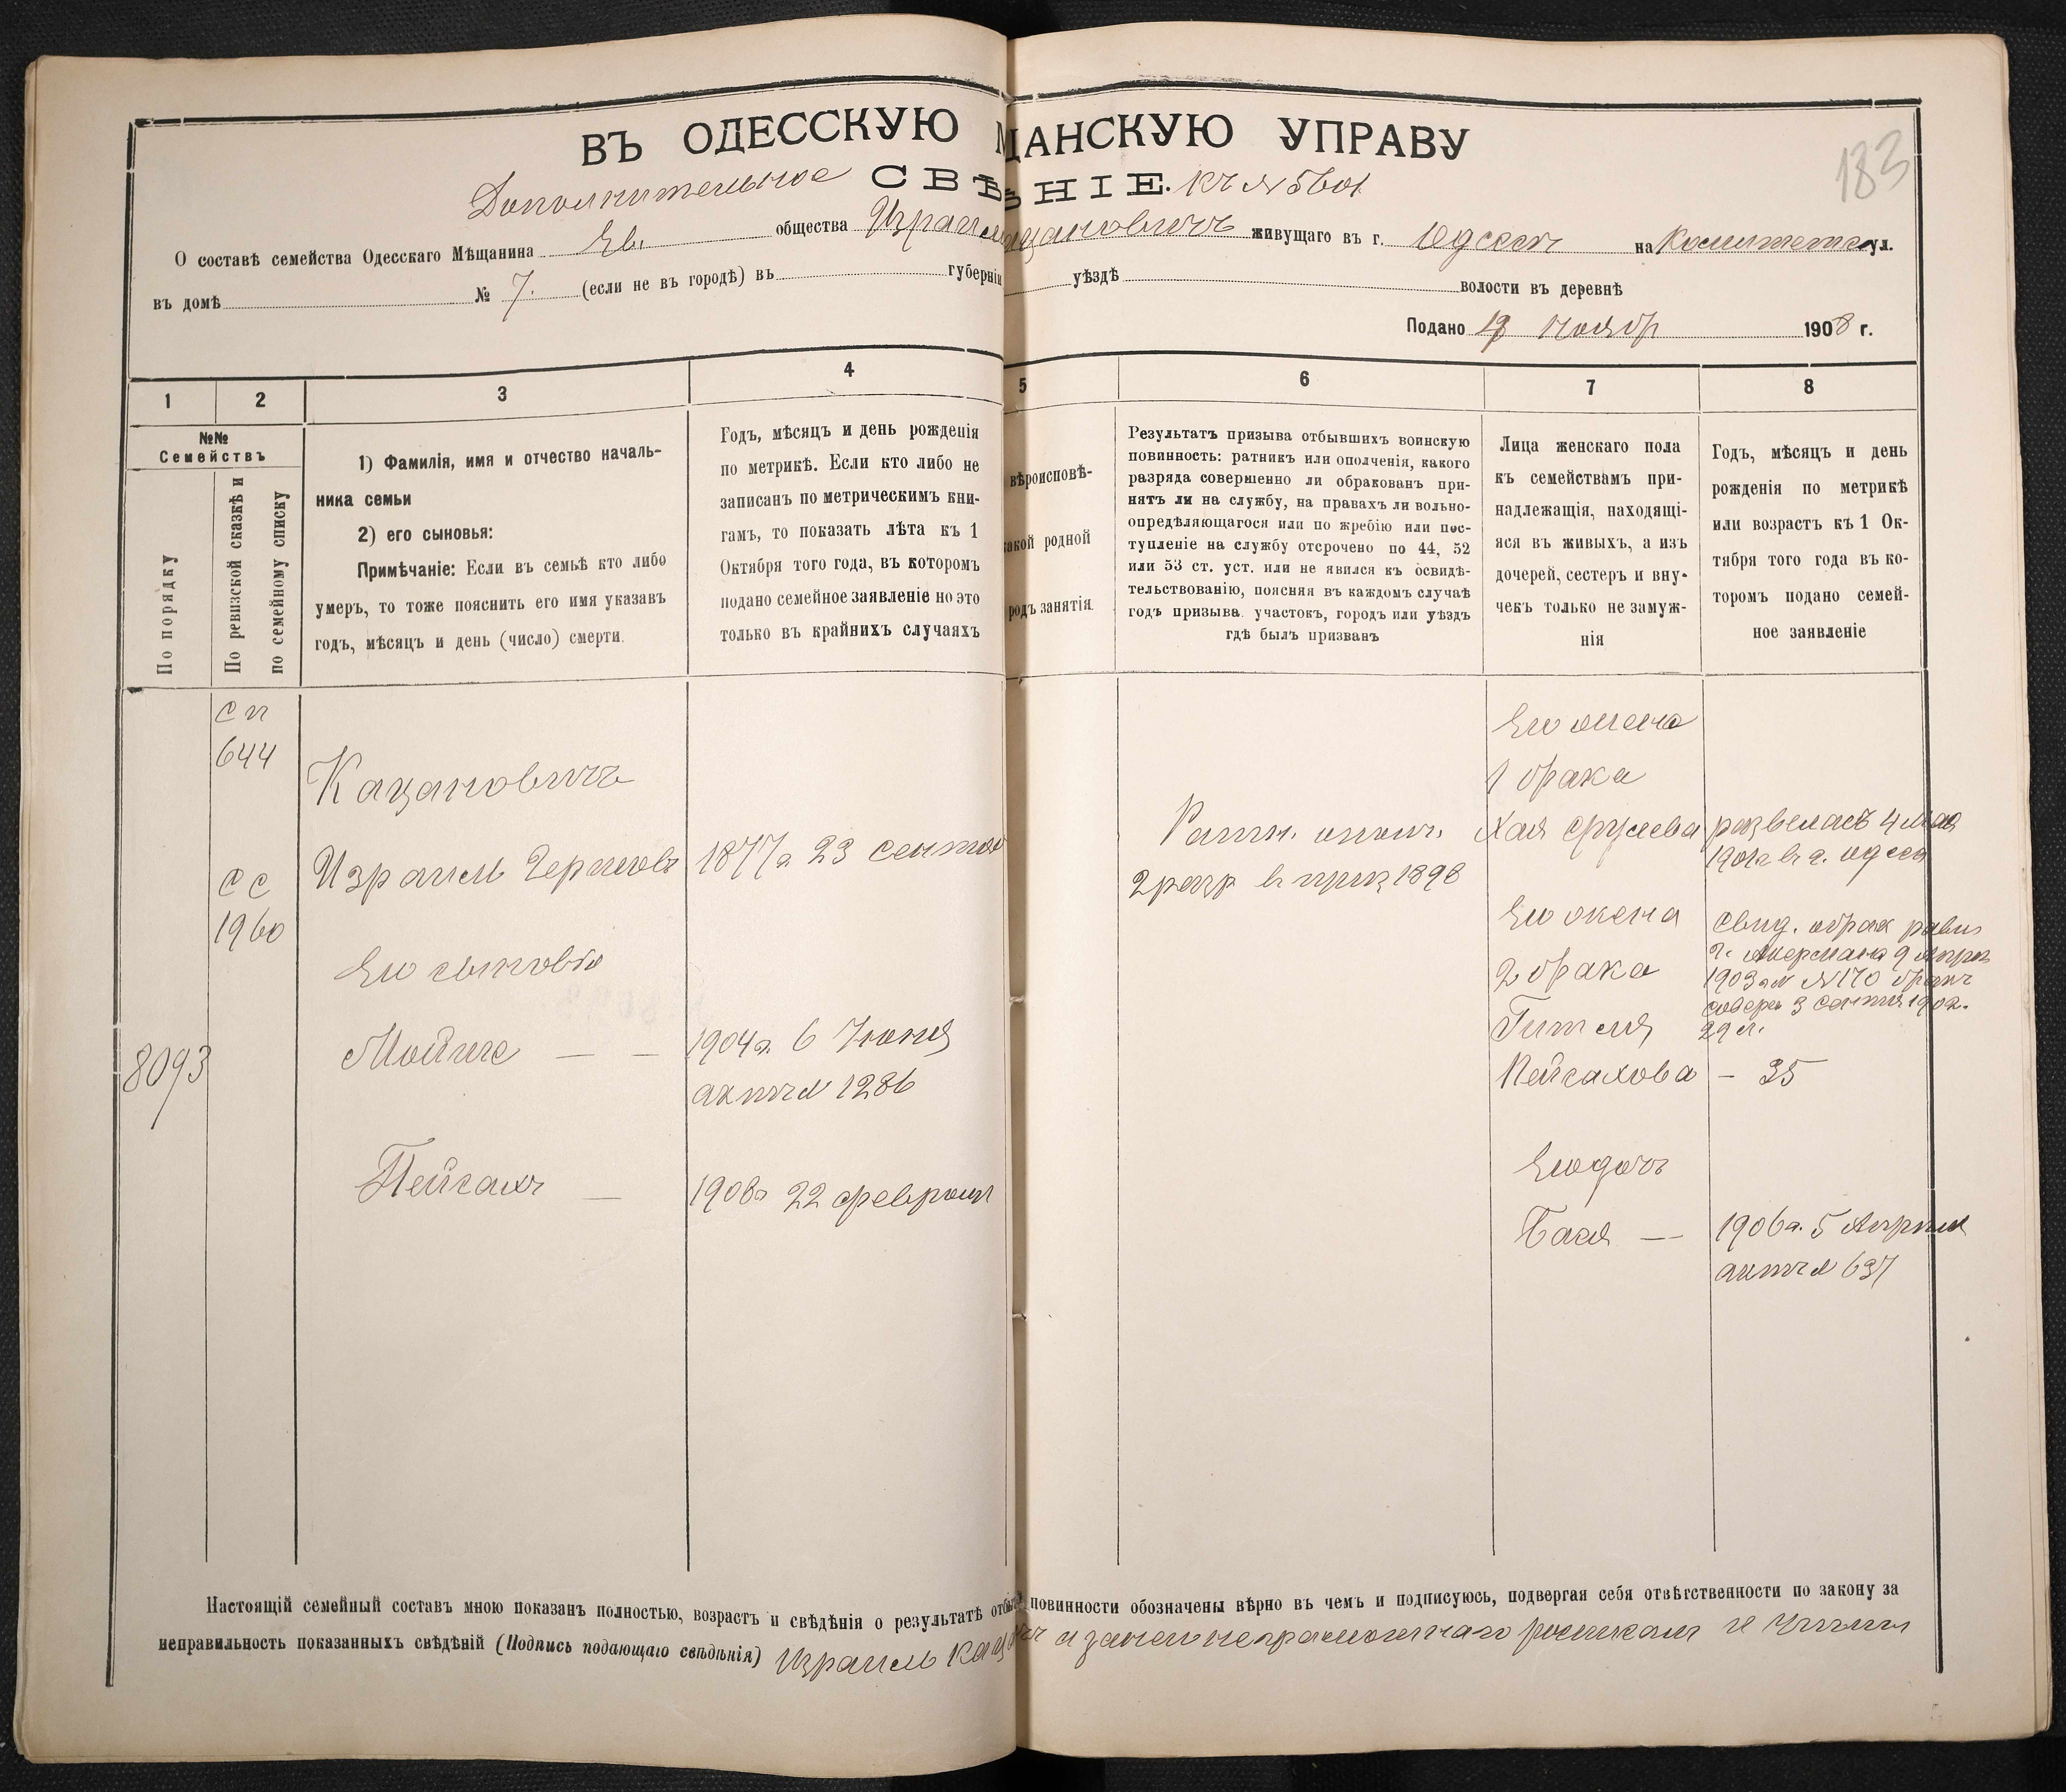 183
ВЪ ОДЕССКУЮ М ЩАНСКУЮ УПРАВУ
Дополнительное СВѢ НІЕ. къ № 5601
О составѣ семейства Одесскаго Мѣщанина Ев. общества Израиля Кацановичъ живущаго въ г. Одессѣ на Комитетск ул.
въ домѣ № 7. (если не въ городѣ) въ губерніи уѣздѣ волости въ деревнѣ
Подано 19 Ноябр 1908 г.
1
2
3
4
5
6
7
8
№№
Семействъ
По порядку
По ревизской сказкѣ и
по семейному списку
1) Фамилія, имя и отчество началь-
ника семьи
2) его сыновья:
Примѣчаніе: Если въ семьѣ кто либо
умеръ, то тоже пояснить его имя указавъ
годъ, мѣсяцъ и день (число) смерти.
Годъ, мѣсяцъ и день рожденія
по метрикѣ. Если кто либо не
записанъ по метрическимъ кни-
гамъ, то показать лѣта къ 1
Октября того года, въ которомъ
подано семейное заявленіе но это
только въ крайнихъ случаяхъ
вѣроисповѣ-
акой родной
родъ занятія.
Результатъ призыва отбывшихъ воинскую
повинность: ратникъ или ополченія, какого
разряда совершенно ли обракованъ при-
нятъ ли на службу, на правахъ ли вольно-
опредѣляющагося или по жребію или пос-
тупленіе на службу отсрочено по 44, 52
или 53 ст. уст. или не явился къ освидѣ-
тельствованію, поясняя въ каждомъ случаѣ
годъ призыва. участокъ, городъ или уѣздъ
гдѣ былъ призванъ
Лица женскаго пола
къ семействамъ при-
надлежащія, находящі-
яся въ живыхъ, а изъ
дочерей, сестеръ и вну-
чекъ только не замуж-
нія
Годъ, мѣсяцъ и день
рожденія по метрикѣ
или возрастъ къ 1 Ок-
тября того года въ ко-
торомъ подано семей-
ное заявленіе
8093
с п
644
с с
1960
Кацановичъ
Израиль Гершовъ
Его сыновья
Мойше — —
Пейсахъ —
1877 г. 23 сентяб
1904 г. 6 Июня
актъ № 1286
1908 г 22 февраля
Ратн. ополч.
2 разр въ приз 1898
Его жена
1 брака
Хая Срулева
Его жена
2 брака
Гитля
Пейсахова
Его дочь
Бася —
развелась 4 мая
1901 г. в г. Одессѣ
свид. о брак равин
г. Акермана 9 Апрѣ
1903 за № 170 бракъ
соверш 3 сентя 1902.
29 л.
— 35
1906 г. 5 Апрѣля
актъ № 637
Настоящій семейный составъ мною показанъ полностью, возрастъ и свѣдѣнія о результатѣ отбы повинности обозначены вѣрно въ чемъ и подписуюсь, подвергая себя отвѣтственности по закону за
неправильность показанныхъ свѣдѣній (Подпись подающаго свѣдѣнія) Израиль Кац а за него неграмотнаго